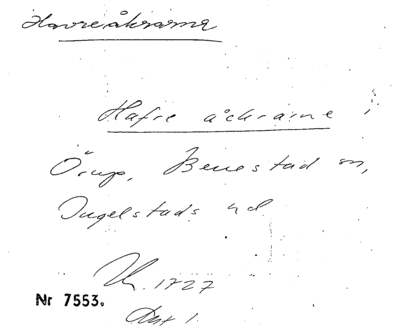 Havreåkrarna
Hafre åckrarne i
Örup, Benestad sn,
Ingelstads hd
Nr 7553.
1727
Akt 1.